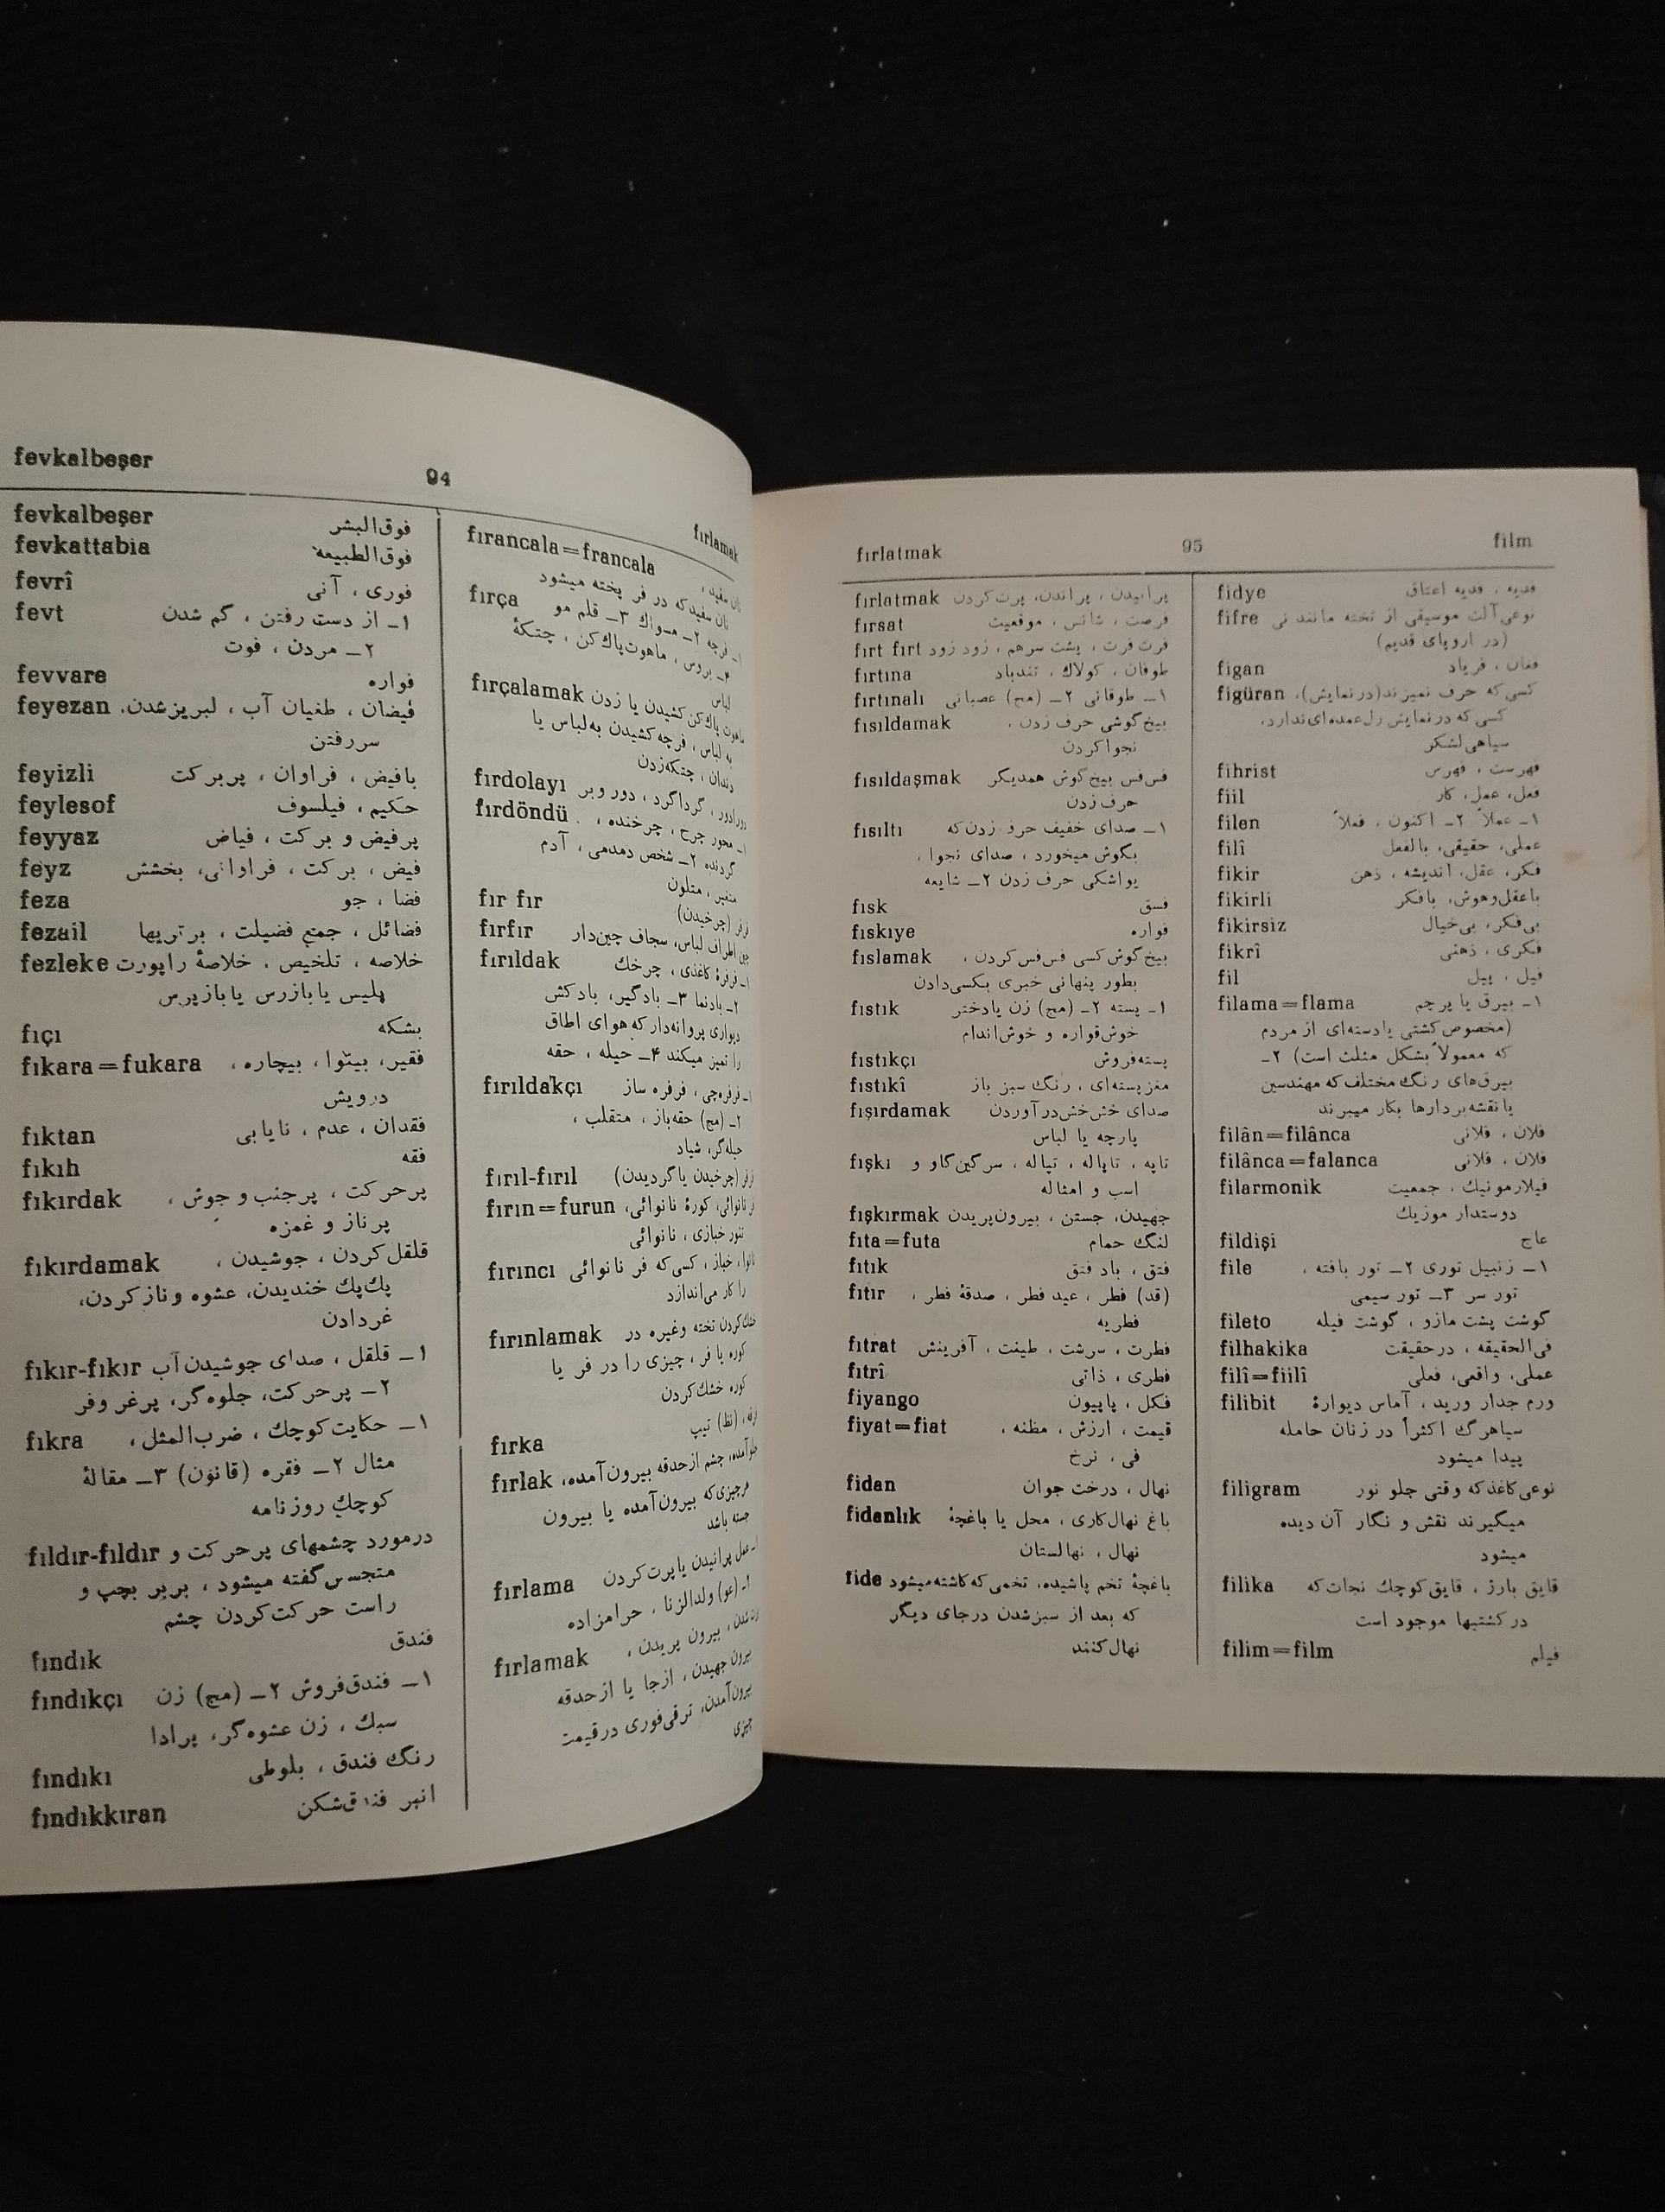 fevkalbeşer
94
fırlamak
fevkalbeşer فوق‌البشر
fevkattabia فوق‌الطبیعه
fevrî فوری ، آنی
fevt ۱ــ از دست رفتن ، گم شدن
۲ــ مردن ، فوت
fevvare فواره
feyezan فیضان ، طغیان آب ، لبریزشدن،
سررفتن
feyizli بافیض ، فراوان ، پربرکت
feylesof حکیم ، فیلسوف
feyyaz پرفیض و برکت ، فیاض
feyz فیض ، برکت ، فراوانی، بخشش
feza فضا ، جو
fezail فضائل ، جمع فضیلت ، برتریها
fezleke خلاصه ، تلخیص ، خلاصهٔ راپورت
پلیس یا بازرس یا بازپرس
fıçı بشکه
fıkara=fukara فقیر، بینوا ، بیچاره ،
درویش
fıktan فقدان ، عدم ، نایابی
fıkıh فقه
fıkırdak پرحرکت ، پرجنب و جوش ،
پرناز و غمزه
fıkırdamak قلقل‌کردن ، جوشیدن ،
پك‌پك خندیدن، عشوه ونازکردن،
غردادن
fıkır-fıkır ۱ــ قلقل ، صدای جوشیدن آب
۲ــ پرحرکت، جلوه‌گر، پرغر وفر
fıkra ۱ــ حکایت‌کوچك ، ضرب‌المثل ،
مثال ۲ــ فقره (قانون) ۳ــ مقالهٔ
کوچك روزنامه
fıldır-fıldır درمورد چشمهای پرحرکت و
متجسس‌گفته میشود ، بربر بچپ و
راست حرکت‌کردن چشم
fındık فندق
fındıkçı ۱ــ فندق‌فروش ۲ــ (مج) زن
سبك ، زن عشوه‌گر، پرادا
fındıkı رنگ فندق ، بلوطی
fındıkkıran انبر فندق‌شکن
fırancala=francala نان سفید ،
نان سفیدکه در فر پخته میشود
fırça ۱ــ فرچه ۲ــ مسواك ۳ــ قلم مو
۴ــ بروس ، ماهوت‌پاك‌کن ، چتکهٔ
لباس
fırçalamak ماهوت پاك‌کن‌کشیدن یا زدن
به لباس ، فرچه‌کشیدن به‌لباس یا
دندان ، چتکه‌زدن
fırdolayı دورادور ، گرداگرد ، دور وبر
fırdöndü ۱ــ محور چرخ ، چرخنده ،
گردنده ۲ــ شخص دمدمی ، آدم
متغیر ، متلون
fır fır فرفر (چرخیدن)
fırfır چین اطراف لباس، سجاف چین‌دار
fırıldak ۱ــ فرفرهٔ کاغذی ، چرخك
۲ــ بادنما ۳ــ بادگیر، بادکش
دیواری پروانه‌دارکه هوای اطاق
را تمیز میکند ۴ــ حیله ، حقه
fırıldakçı ۱ــ فرفره‌چی ، فرفره ساز
۲ــ (مج) حقه‌باز ، متقلب ،
حیله‌گر، شیاد
fırıl-fırıl فرفر (چرخیدن یا گردیدن)
fırın=furun فر نانوائی، کورهٔ نانوائی،
تنور خبازی ، نانوائی
fırıncı نانوا، خباز ، کسی‌که فر نانوائی
را کار می‌اندازد
fırınlamak خشك‌کردن تخته وغیره در
کوره یا فر ، چیزی را در فر یا
کوره خشك‌کردن
fırka فرقه ، (نظ) تیپ
fırlak جلوآمده، چشم ازحدقه بیرون‌آمده،
هرچیزی‌که بیرون‌آمده یا بیرون
جسته باشد
fırlama ۱ــ عمل پرانیدن یا پرت‌کردن
۲ــ (عو) ولدالزنا ، حرامزاده
fırlamak شدن، بیرون پریدن ،
بیرون جهیدن ، ازجا یا ازحدقه
بیرون‌آمدن، ترقی‌فوری درقیمت
چیزی
fırlatmak
95
film
fırlatmak پرانیدن ، پراندن، پرت‌کردن
fırsat فرصت ، شانس ، موقعیت
fırt fırt فرت فرت ، پشت سرهم ، زود زود
fırtına طوفان ، کولاك ، تندباد
fırtınalı ۱ــ طوفانی ۲ــ (مج) عصبانی
fısıldamak بیخ‌گوشی حرف زدن ،
نجواکردن
fısıldaşmak فس‌فس بیخ‌گوش همدیگر
حرف‌زدن
fısıltı ۱ــ صدای خفیف حرف زدن‌که
بگوش میخورد ، صدای نجوا ،
یواشکی حرف زدن ۲ــ شایعه
fısk فسق
fıskıye فواره
fıslamak بیخ‌گوش‌کسی فس‌فس‌کردن ،
بطور پنهانی خبری بکسی‌دادن
fıstık ۱ــ پسته ۲ــ (مج) زن یادختر
خوش‌قواره و خوش‌اندام
fıstıkçı پسته‌فروش
fıstıkî مغزپسته‌ای ، رنگ سبز باز
fışırdamak صدای خش‌خش‌درآوردن
پارچه یا لباس
fışkı تاپه ، تاپاله ، تپاله ، سرگین‌گاو و
اسب و امثاله
fışkırmak جهیدن، جستن ، بیرون‌پریدن
fıta=futa لنگ حمام
fıtık فتق ، باد فتق
fıtır (قد) فطر ، عید فطر ، صدقهٔ فطر ،
فطریه
fıtrat فطرت ، سرشت ، طینت ، آفرینش
fıtrî فطری ، ذاتی
fiyango فکل ، پاپیون
fiyat=fiat قیمت ، ارزش ، مظنه ،
فی ، نرخ
fidan نهال ، درخت جوان
fidanlık باغ نهال‌کاری ، محل یا باغچهٔ
نهال ، نهالستان
fide باغچهٔ تخم پاشیده، تخمی‌که‌کاشته‌میشود
که بعد از سبزشدن درجای دیگر
نهال‌کنند
fidye فدیه ، فدیه اعتاق
fifre نوعی‌آلت موسیقی از تخته مانند نی
(در اروپای قدیم)
figan فغان ، فریاد
figüran کسی‌که حرف نمیزند(درنمایش)،
کسی‌که درنمایش رل‌عمده‌ای‌ندارد،
سیاهی‌لشکر
fihrist فهرست ، فهرس
fiil فعل، عمل، کار
filen ۱ــ عملاً ۲ــ اکنون ، فعلاً
filî عملی، حقیقی، بالفعل
fikir فکر، عقل، اندیشه ، ذهن
fikirli باعقل‌وهوش، بافکر
fikirsiz بی‌فکر، بی‌خیال
fikrî فکری ، ذهنی
fil فیل ، پیل
filama=flama ۱ــ بیرق یا پرچم
(مخصوص‌کشتی یادسته‌ای از مردم
که معمولاً بشکل مثلث است) ۲ــ
بیرق‌های رنگ مختلف‌که مهندسین
یا نقشه‌بردارها بکار میبرند
filân=filânca فلان ، فلانی
filânca=falanca فلان ، فلانی
filarmonik فیلارمونیك ، جمعیت
دوستدار موزیك
fildişi عاج
file ۱ــ زنبیل توری ۲ــ تور بافته ،
تور سر ۳ــ تور سیمی
fileto گوشت پشت مازو ، گوشت فیله
filhakika فی‌الحقیقه ، درحقیقت
filî=fiilî عملی، واقعی، فعلی
filibit ورم جدار ورید ، آماس دیوارهٔ
سیاهرگ اکثراً در زنان حامله
پیدا میشود
filigram نوعی‌کاغذکه وقتی جلو نور
میگیرند نقش و نگار آن دیده
میشود
filika قایق بارژ ، قایق‌کوچك نجات‌که
درکشتیها موجود است
filim=film فیلم